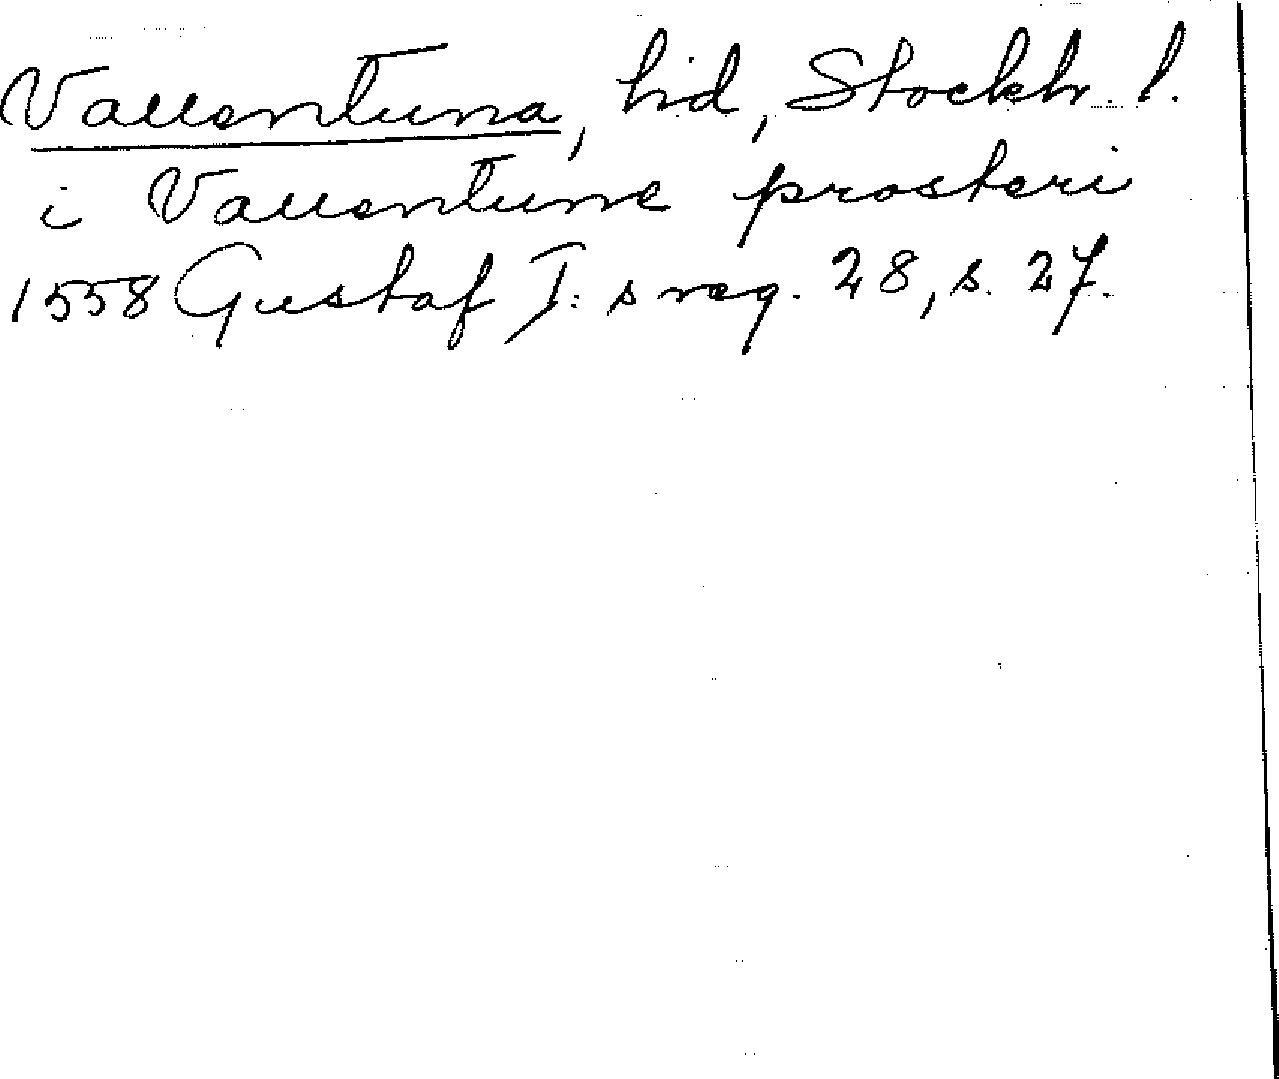 Vallentuna, hd, Stockh. l.
i Vallentune prosteri
1558 Gustaf I:s reg. 28, s. 27.